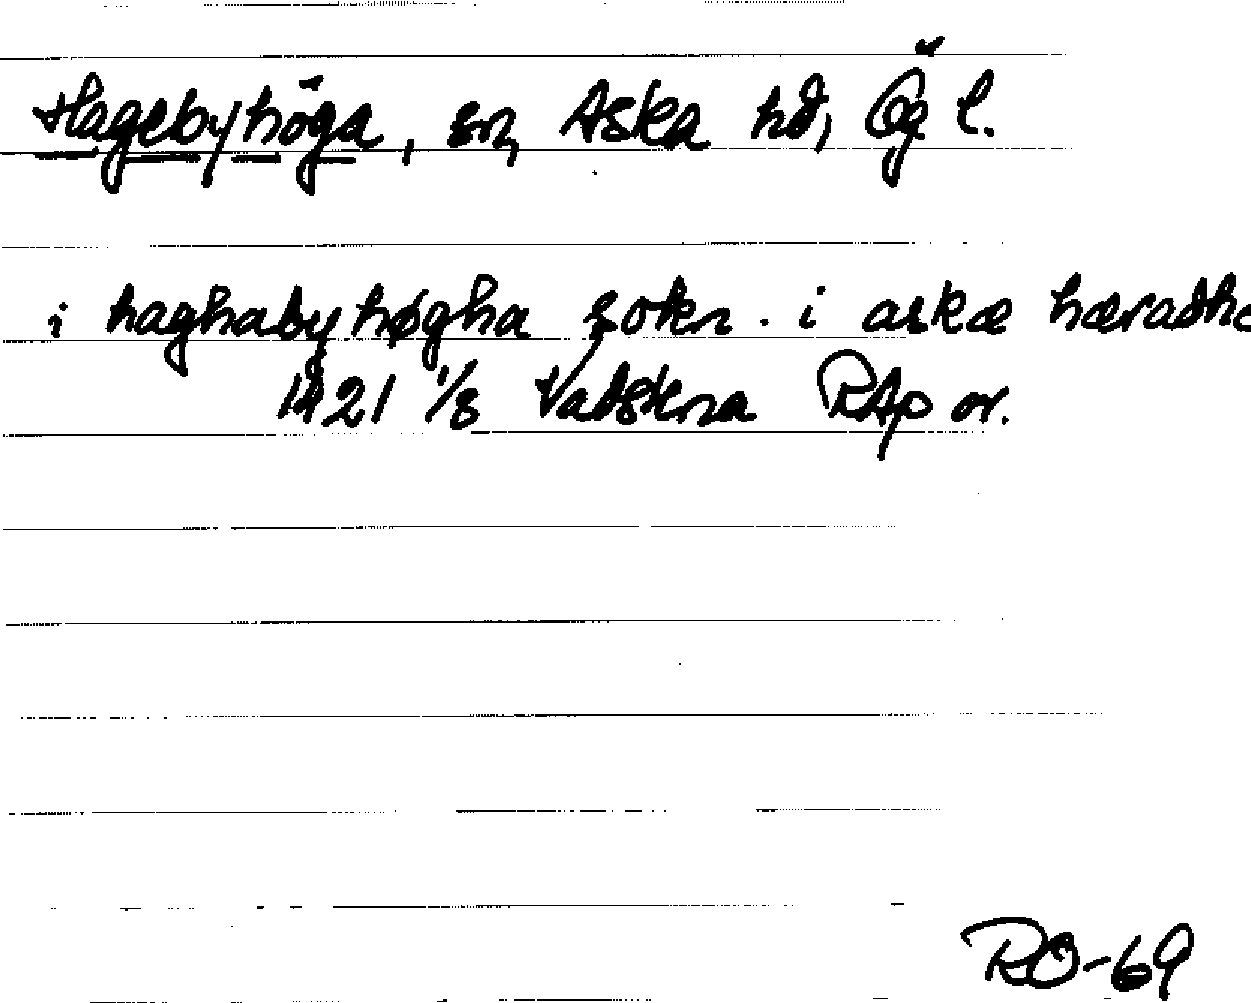 Hagebyhöga, sn, Aska hd, Ög l.
i haghabyhøgha sokn. i askæ hæradhe
1421 1/8 Vadstena RAp or.
RO-69